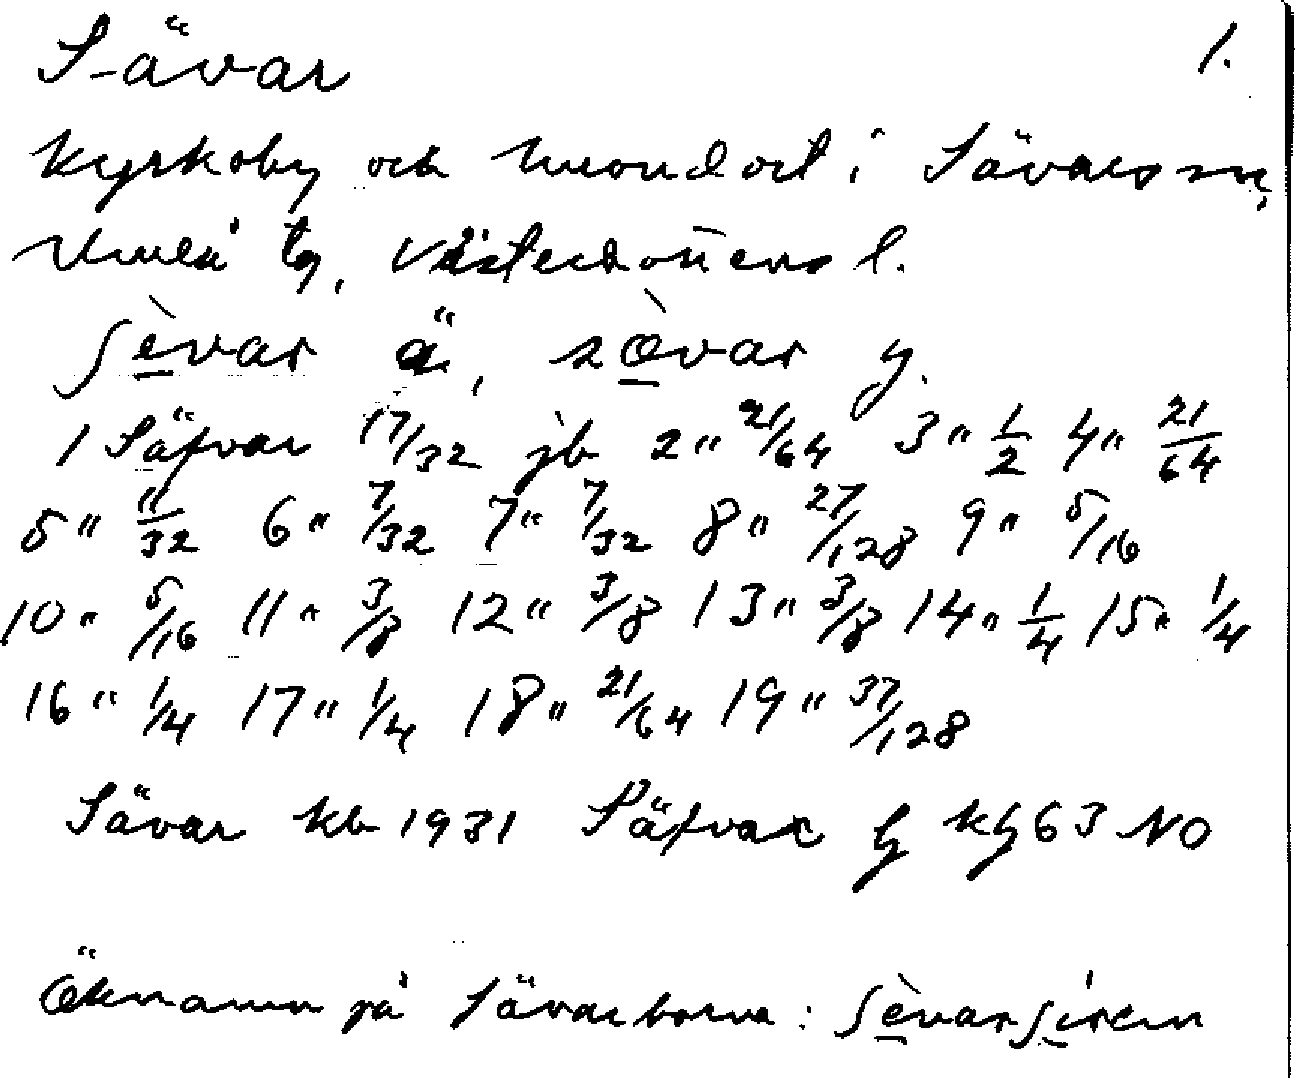 Sävar 1.
kyrkoby och huvudort i Sävars sn,
Umeå tg, Västerbottens l.
ʃèvar ä, sæ̀var y.
1 Säfvar 17/32 jb 2 " 21/64 3 " 1/2 4 " 21/64
5 " 11/32 6 " 7/32 7 " 7/32 8 " 27/128 9 " 5/16
10 " 5/16 11 " 3/8 12 " 3/8 13 " 3/8 14 " 1/4 15 " 1/4
16 " 1/4 17 " 1/4 18 " 21/64 19 " 37/128
Sävar kb 1931 Säfvar g kg 63 NO
Öknamn på Sävarborna: ʃèvarʃiken